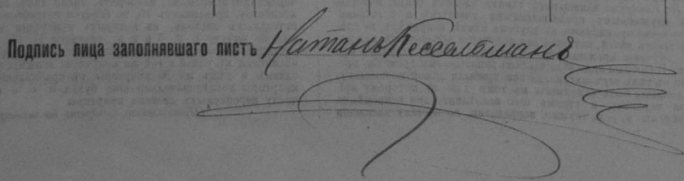 Подпись лица заполнявшаго листъ Натанъ Кессельманъ